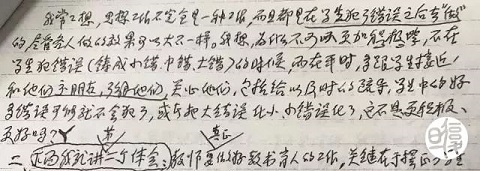 我常常想，思想工作不完全是一种工作，而且都是在学生犯了错误之后去"做"
的，尽管各人做的效果可以大不一样。我想，为什么不可以更加积极些，不在
学生犯错误（铸成小错、中错、大错）的时候，而在平时，多跟学生接近，
和他们交朋友，了解他们，关心他们，包括给以及时的疏导，学生中的好
多错误可能就不会犯了，或者把大错误化小，小错误化了，这不是更积极、
更好吗？
真正
二、下面我就讲一个体会：教师要做好教书育人的工作，关键在于摆正